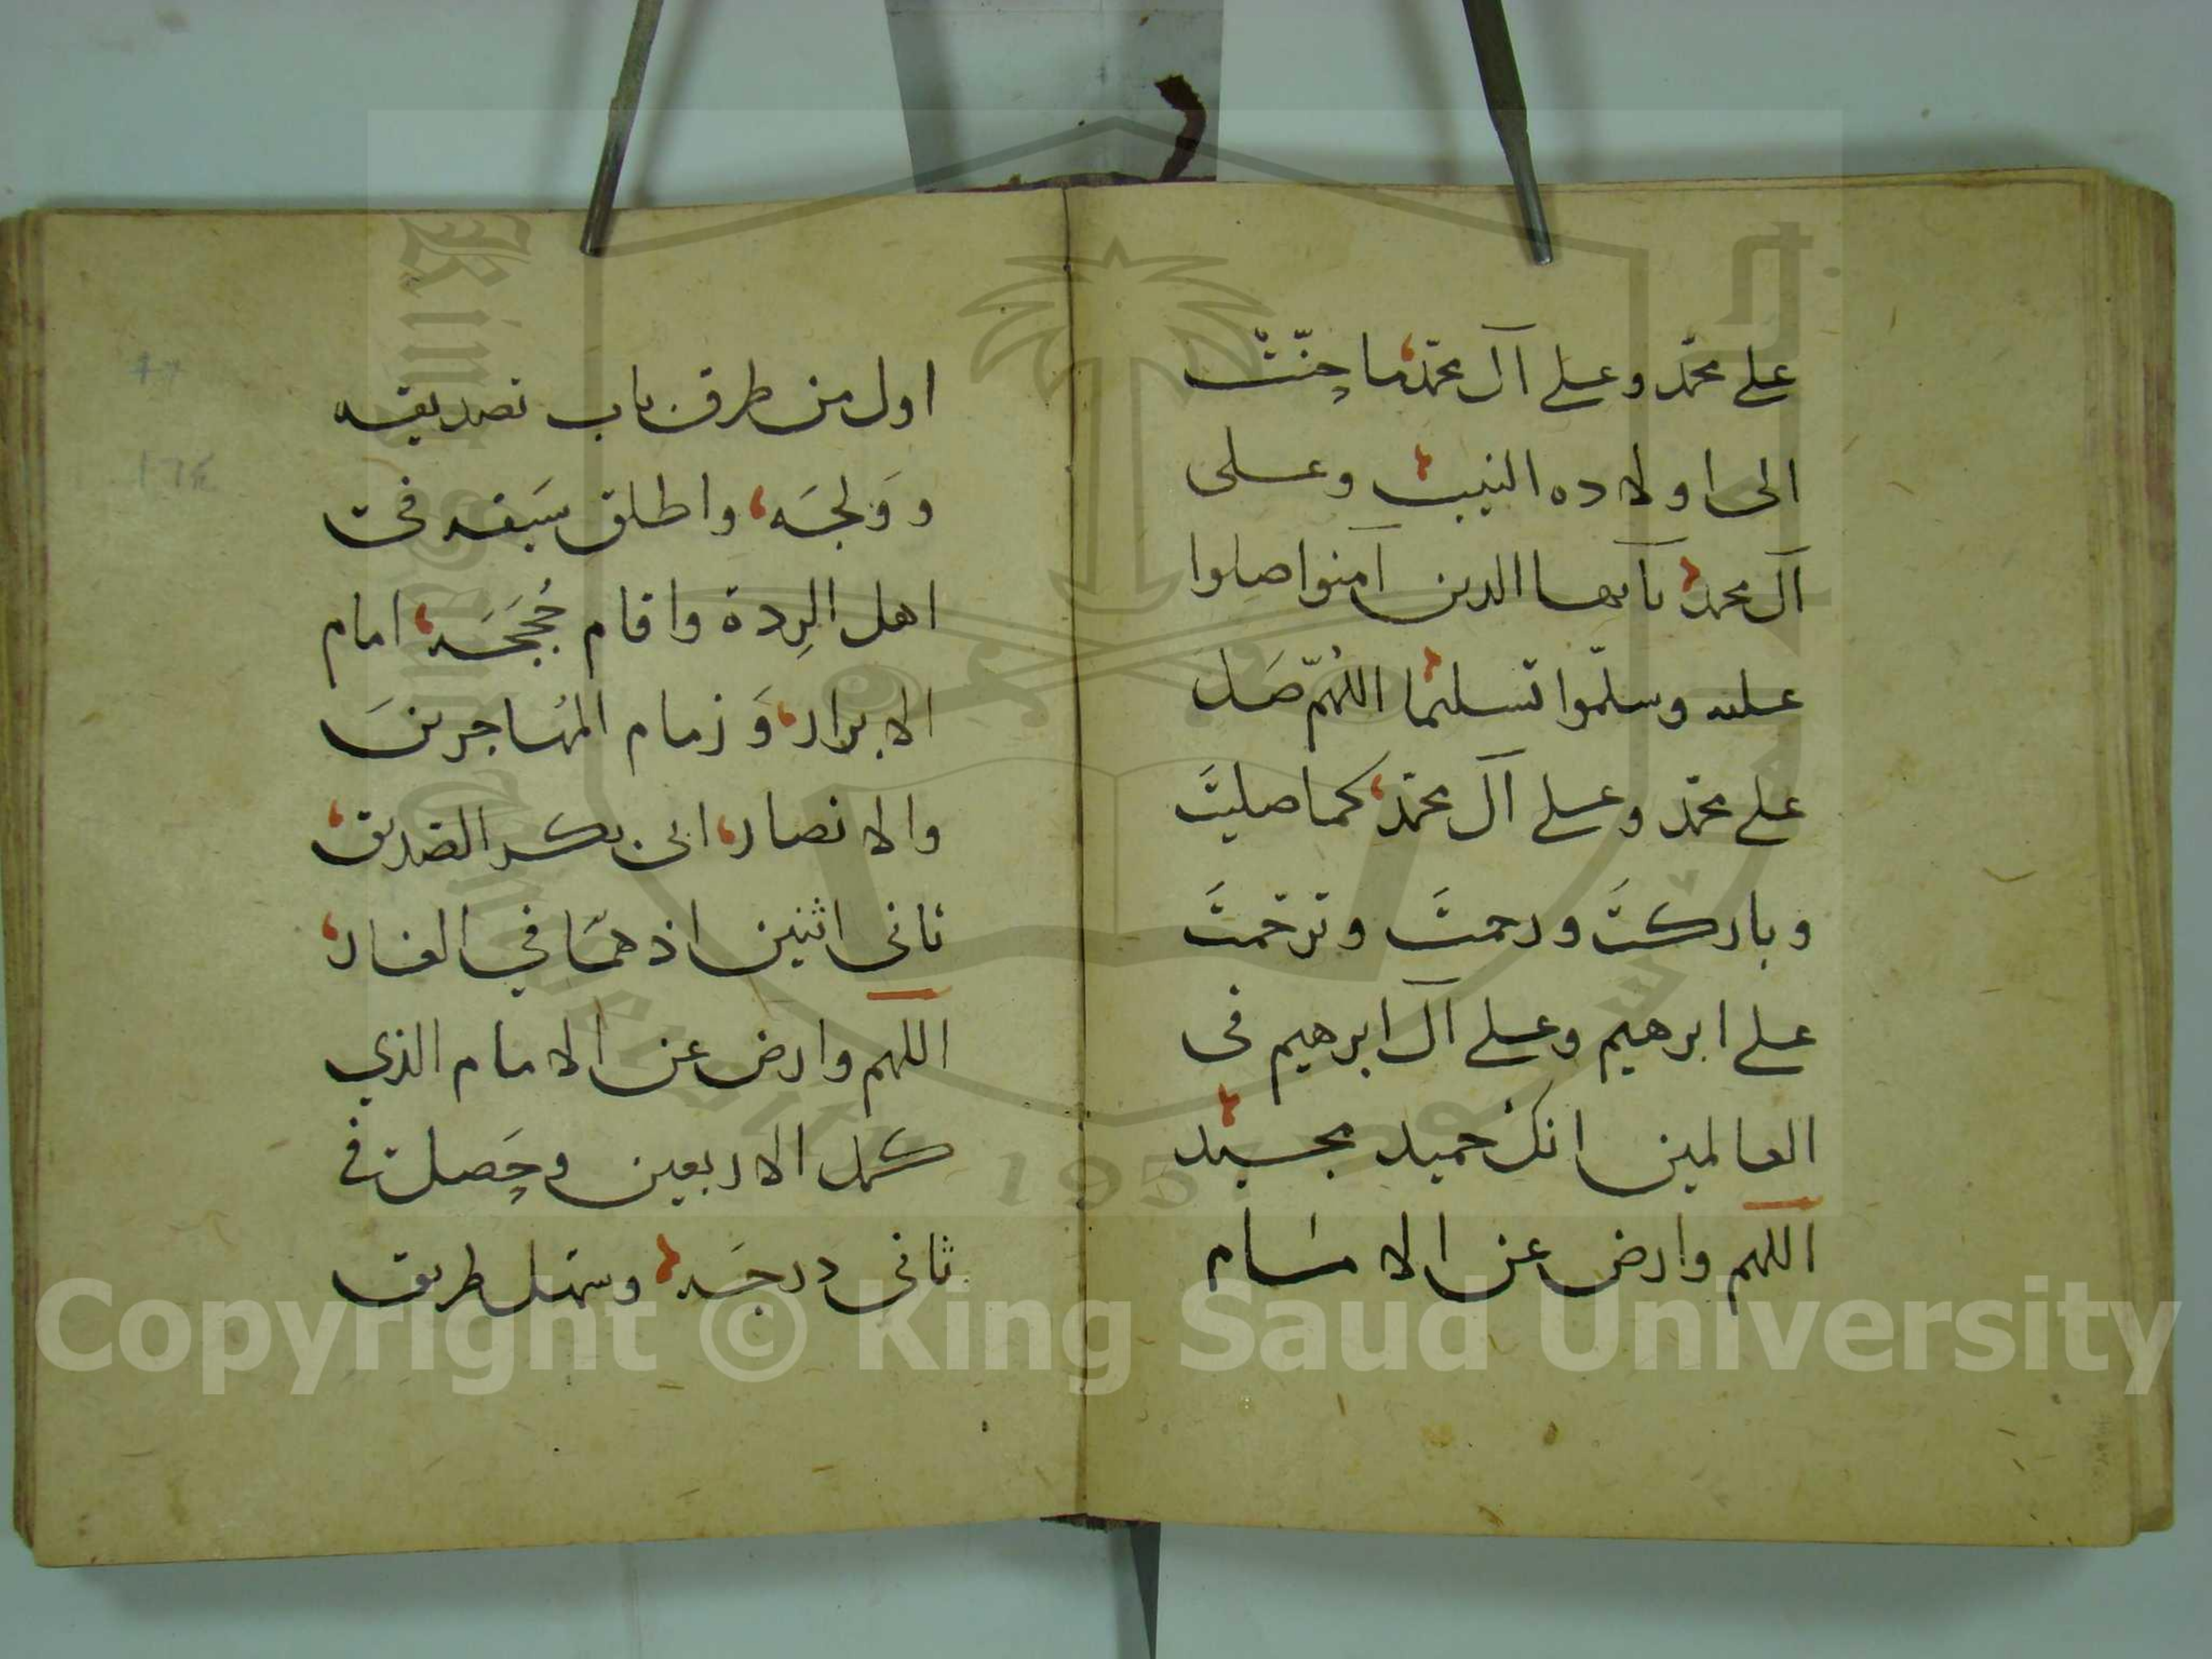 على محمّد وعلى آل محمّد ما حنّتْ
الى اولاده النيب وعلى
آل محمد يآ ايها الدين آمنوا صلوا
عليه وسلّموا تسليما اللهُمّ صَل
على محمّد وعلى آل محمّد كما صليتَ
وباركتَ ورحمتَ وترحّمتَ
على ابرهيم وعلى آل ابرهيم فى
العالمين انك حميد مجيد
اللهم وارض عن الامام
اول من طرق باب تصديقه
ووَلجَه واطلق سَيفه فى
اهل الرِدة واقام حُججَه امام
الابرار وَزمام المهُاجرينَ
والانصار ابى بكر الصديق
ثانى اثنين اذ همَا في الغار
اللهم وارض عن الامام الذي
كمل الاربعين وحَصل فى
ثانى درجَه وسهّل طريق
٩٦
١٦٤
Copyright © King Saud University
King Saud University
1957